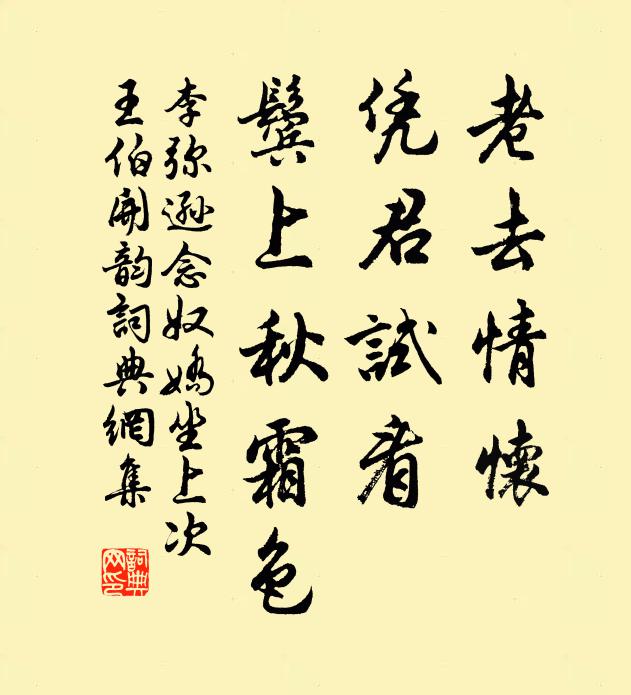 老去情懷
凭君試看
鬓上秋霜色
李弥遜念奴嬌坐上次
王伯開韵詞典網集
詞典
网印